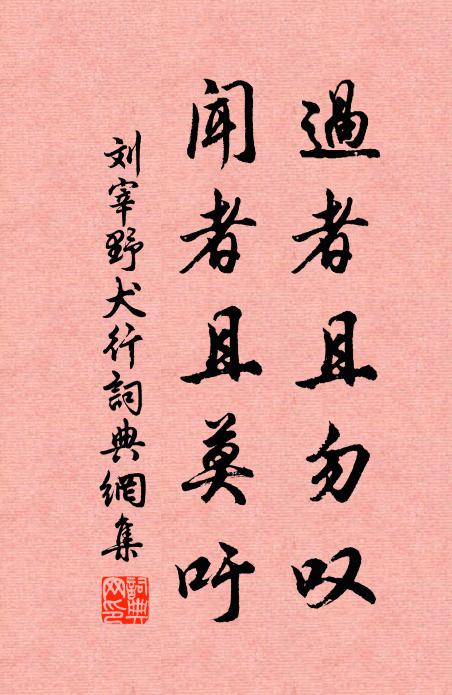 過者且勿叹
闻者且莫吁
刘宰野犬行詞典網集
詞典网印